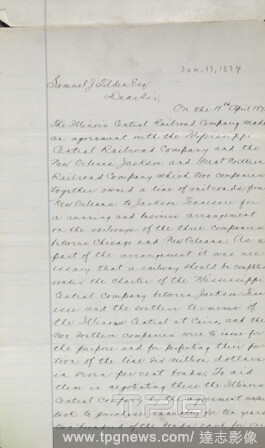 Jan. 17, 1874
Samuel J. Tilden Esq
Dear Sir,
On the 11th April 187
The Illinois Central Railroad Company made
an agreement with the Mississippi
Central Railroad Company and the
New Orleans Jackson and Great Northern
Railroad Company which two companies
together owned a line of railroads from
New Orleans to Jackson Tennessee for
a running and business arrangement
on the railways of the three companies
between Chicago and New Orleans. As a
part of the arrangement it was nec-
essary that a railway should be completed
under the charter of the Mississippi
Central Company between Jackson Tenn-
essee and the southern terminus of
the Illinois Central at Cairo, and the
two southern companies were to issue for
the purpose and for perfecting their por-
tion of the line six million dollars
in seven per cent bonds. To aid
them in negotiating these the Illinois
Central Company by the agreement under-
took to purchase annually for ten years
two hundred of the bonds each for one
TPG
www.tpgnews.com 達志影像